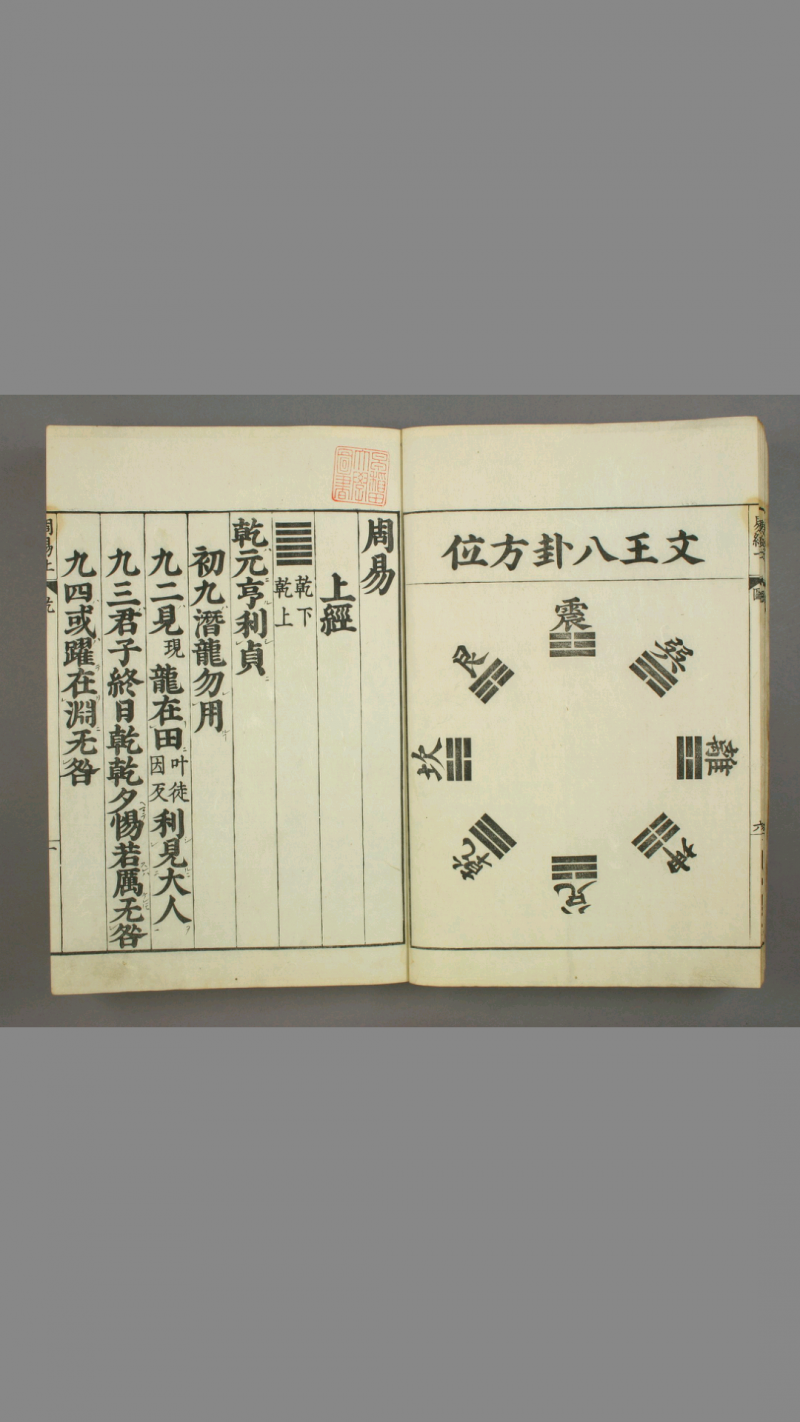 文王八卦方位
震
巽
離
坤
兌
乾
坎
艮
六
周易
上經
乾下
乾上
乾元亨利貞
初九潛龍勿用
九二見現龍在田叶徒因反利見大人
九三君子終日乾乾夕惕若厲无咎
九四或躍在淵无咎
周易上
乾
一
早稻田大學圖書